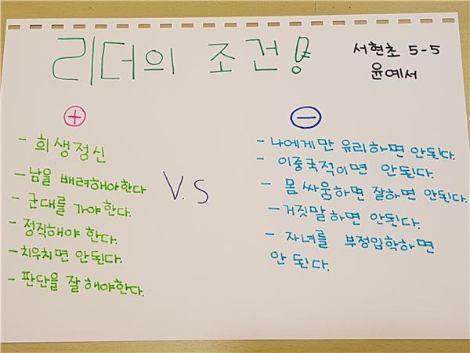 리더의 조건!
서현초 5-5
윤예서
+
- 희생정신
- 남을 배려해야한다
- 군대를 가야 한다.
- 정직해야 한다.
- 치우치면 안된다.
- 판단을 잘 해야한다.
V.S
−
- 나에게만 유리하면 안된다.
- 이중국적이면 안된다.
- 몸싸움하면 잘하면 안된다.
- 거짓말하면 안된다.
- 자녀를 부정입학하면
안 된다.